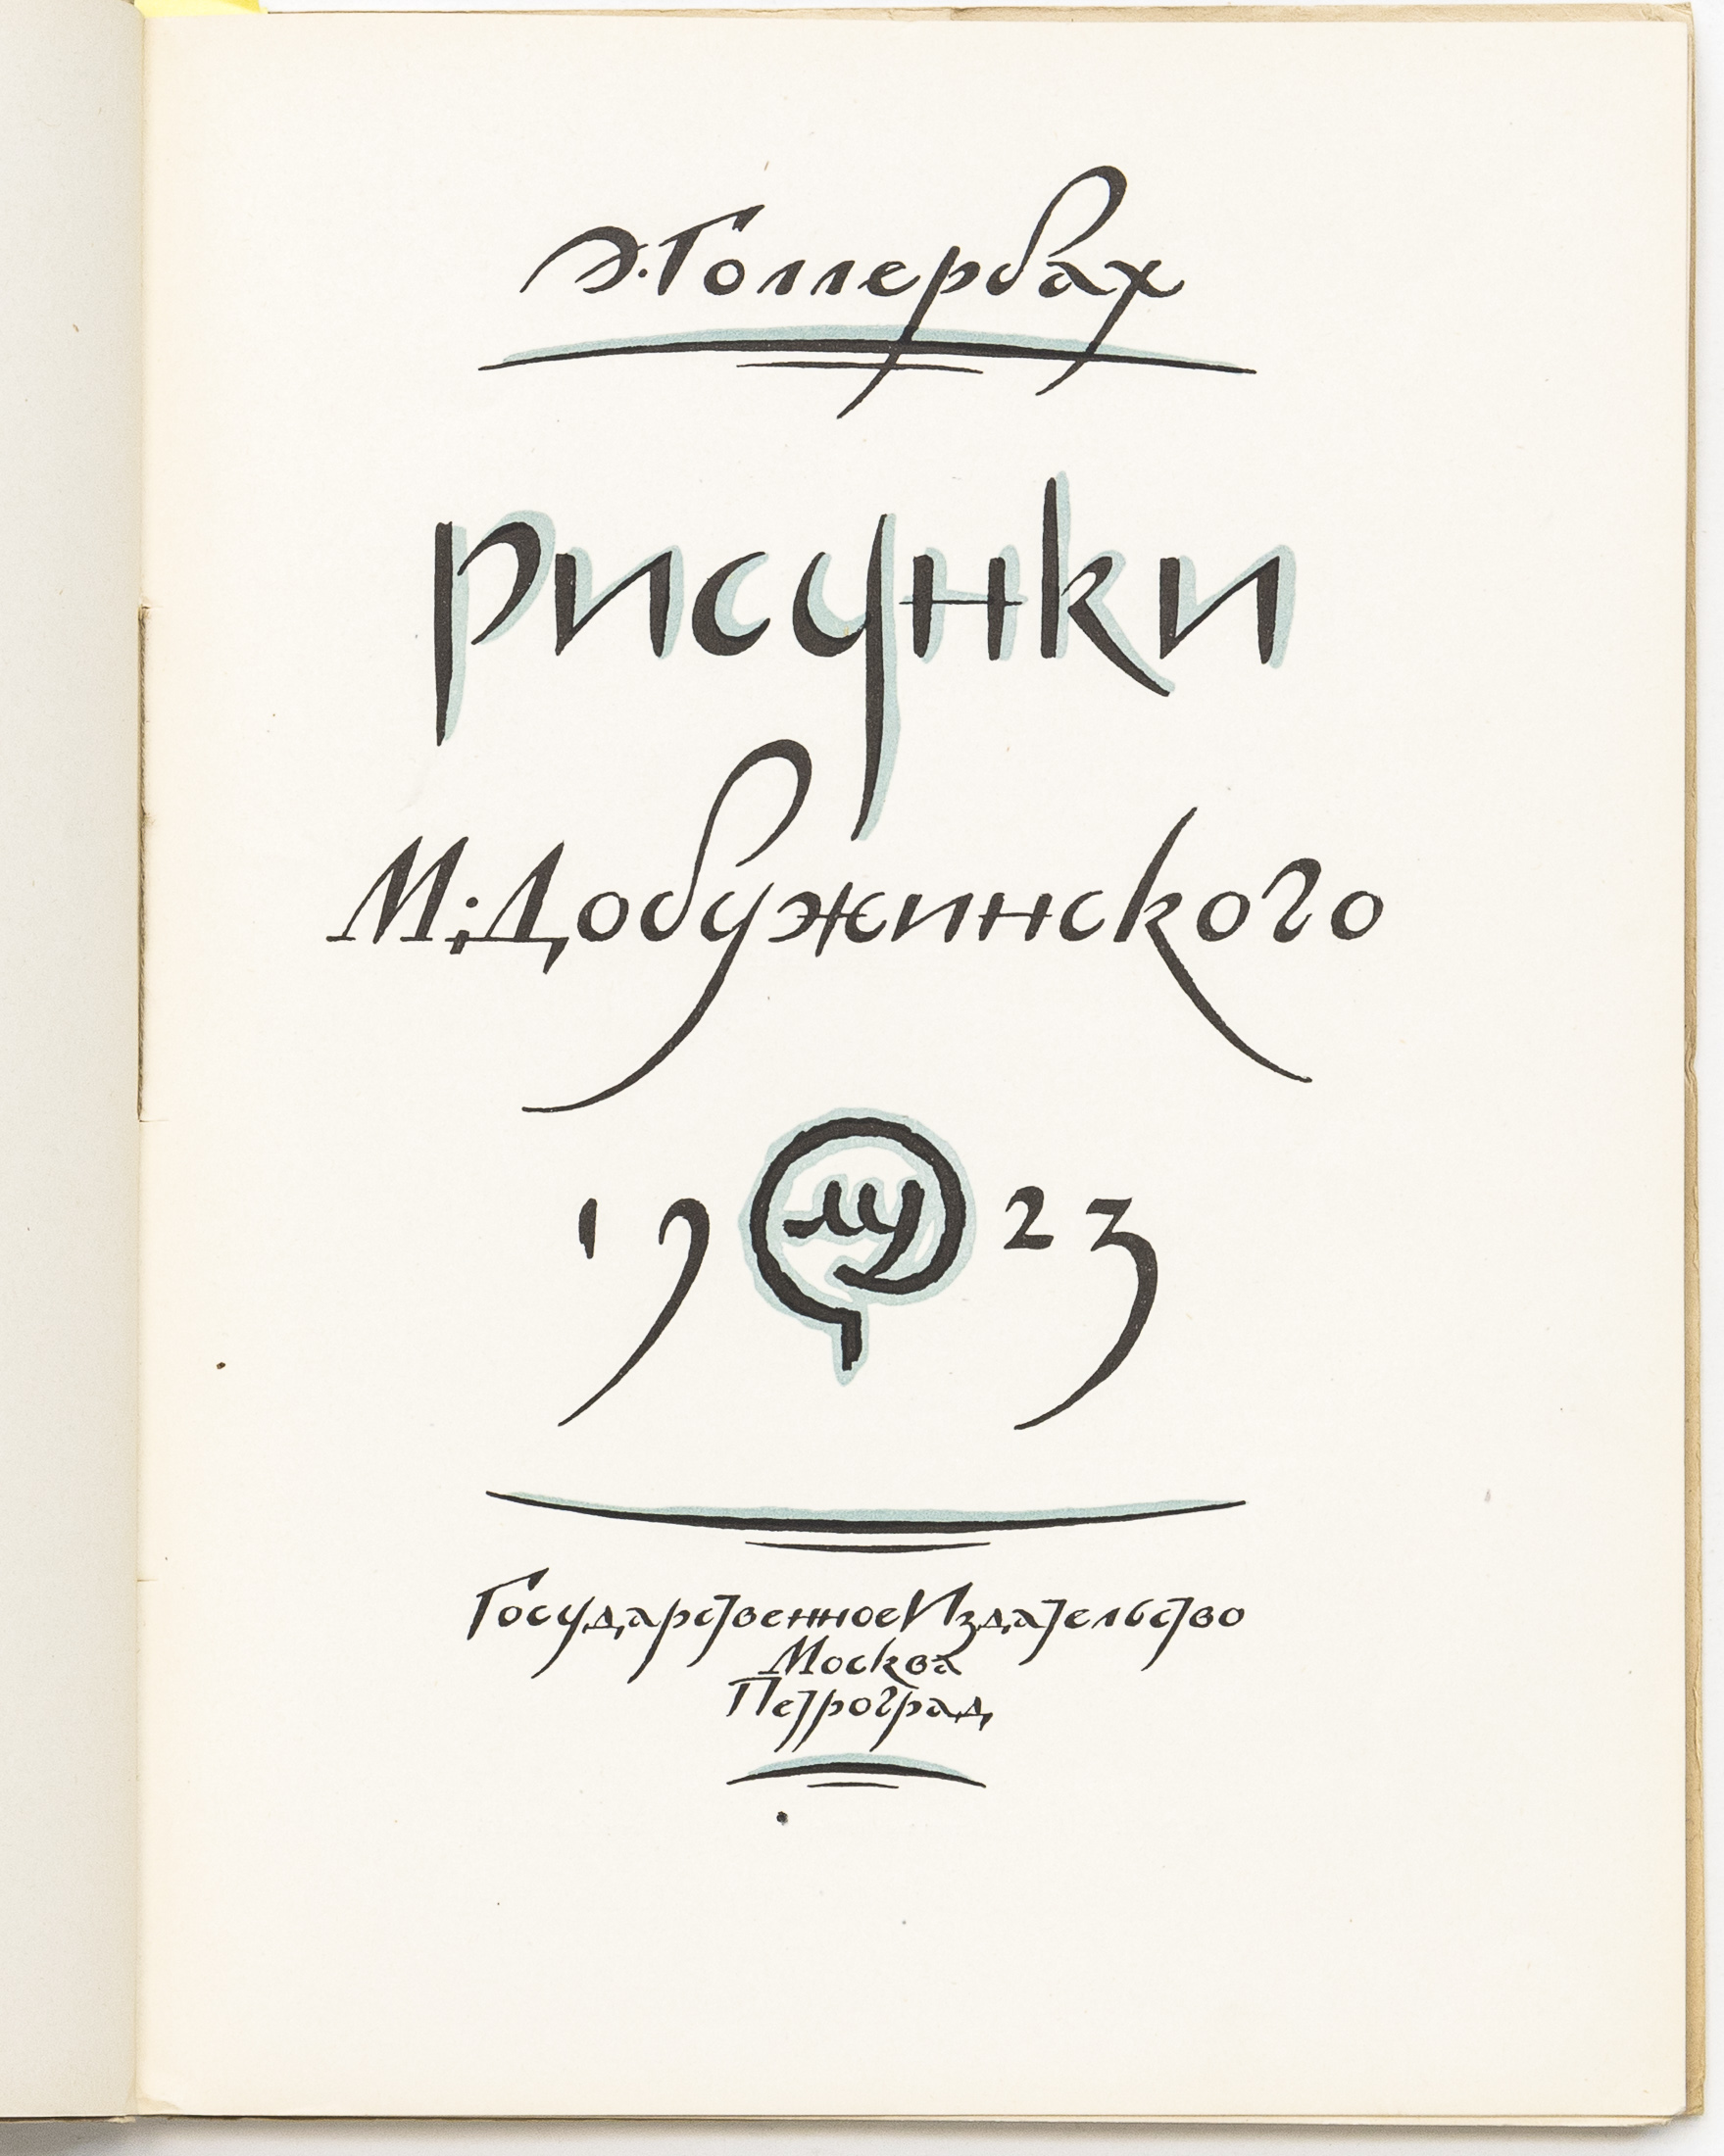 Э. Голлербах
рисунки
М. Добужинского
1923
Государственное Издательство
Москва
Петроград